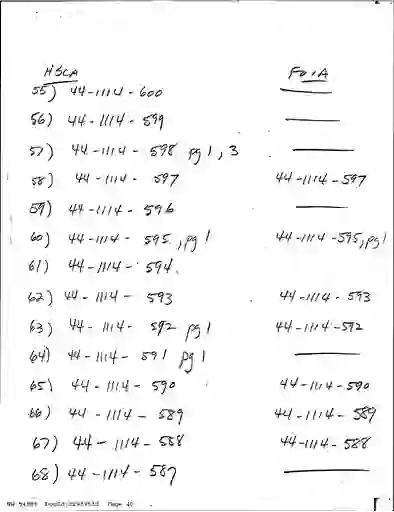 HSCA FOIA
55) 44-1114-600 ———
56) 44-1114-599 ———
57) 44-1114-598 pg 1, 3 ———
58) 44-1114-597 44-1114-597
59) 44-1114-596 ———
60) 44-1114-595, pg 1 44-1114-595, pg 1
61) 44-1114-594.
62) 44-1114-593 44-1114-593
63) 44-1114-592 pg 1 44-1114-592
64) 44-1114-591 pg 1 ———
65) 44-1114-590 44-1114-590
66) 44-1114-589 44-1114-589
67) 44-1114-588 44-1114-588
68) 44-1114-587 ———
Page 40